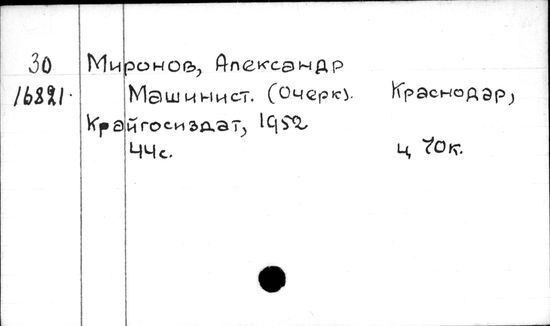 30 Миронов, Александр
16821. Машинист. (Очерк). Краснодар,
Крайгосиздат, 1952
44с. ц 70к.